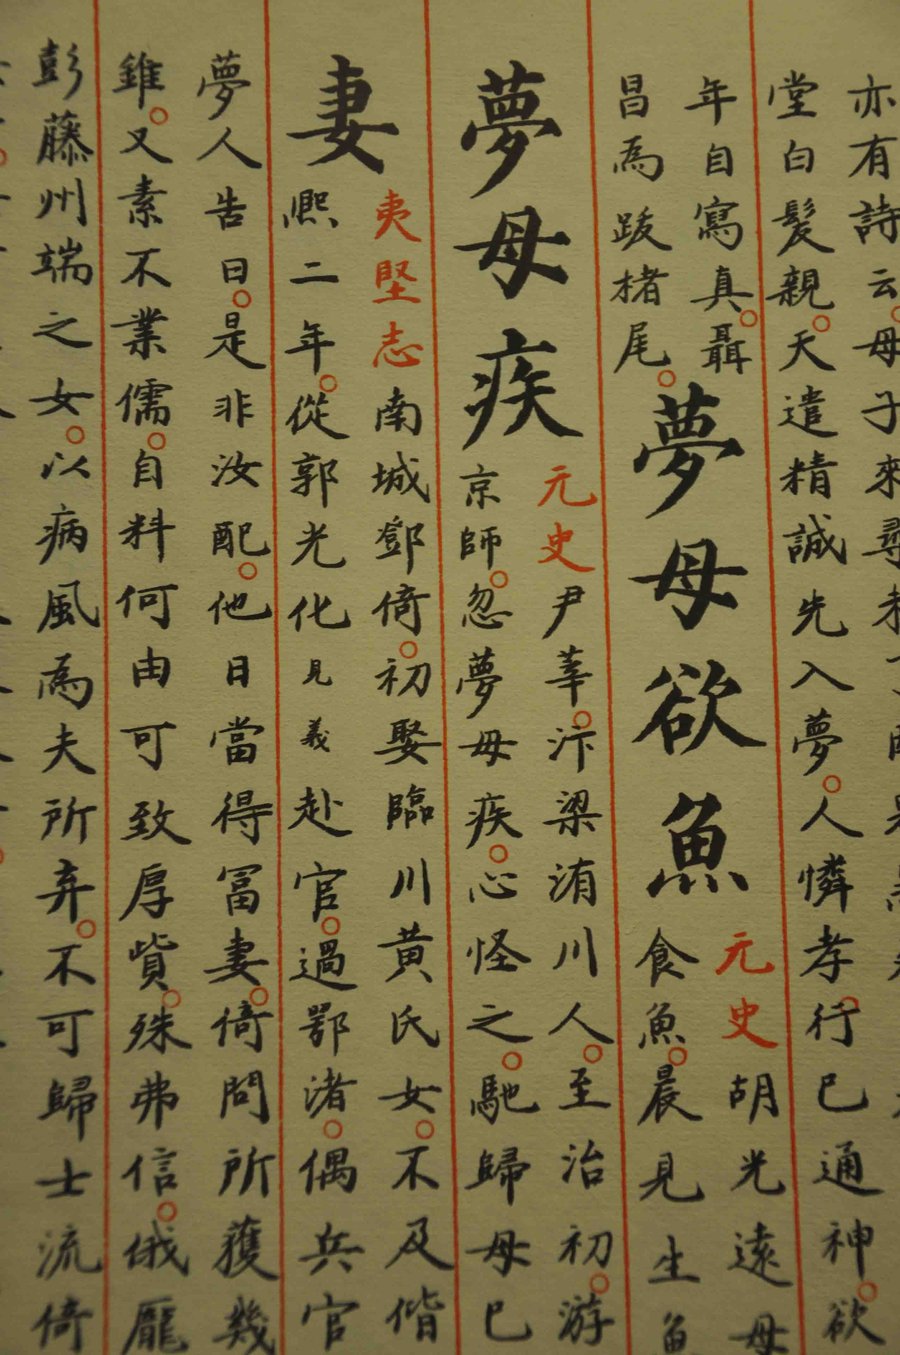 亦有詩云。母子來尋
堂白髮親。天遣精誠先入夢。人憐孝行已通神。欲
年自寫真。聶
昌為跋楮尾。
夢母欲魚
元史胡光遠母
食魚。晨見生魚
夢母疾
元史尹莘。汴梁洧川人。至治初。游
京師。忽夢母疾。心怪之。馳歸母已
妻
夷堅志南城鄧倚。初娶臨川黃氏女。不及偕
熙二年。從郭光化見義赴官。過鄂渚。偶兵官
夢人告曰。是非汝配。他日當得冨妻。倚問所獲幾
錐。又素不業儒。自料何由可致厚貲。殊弗信。俄龎
彭藤州端之女。以病風為夫所弃。不可歸士流倚